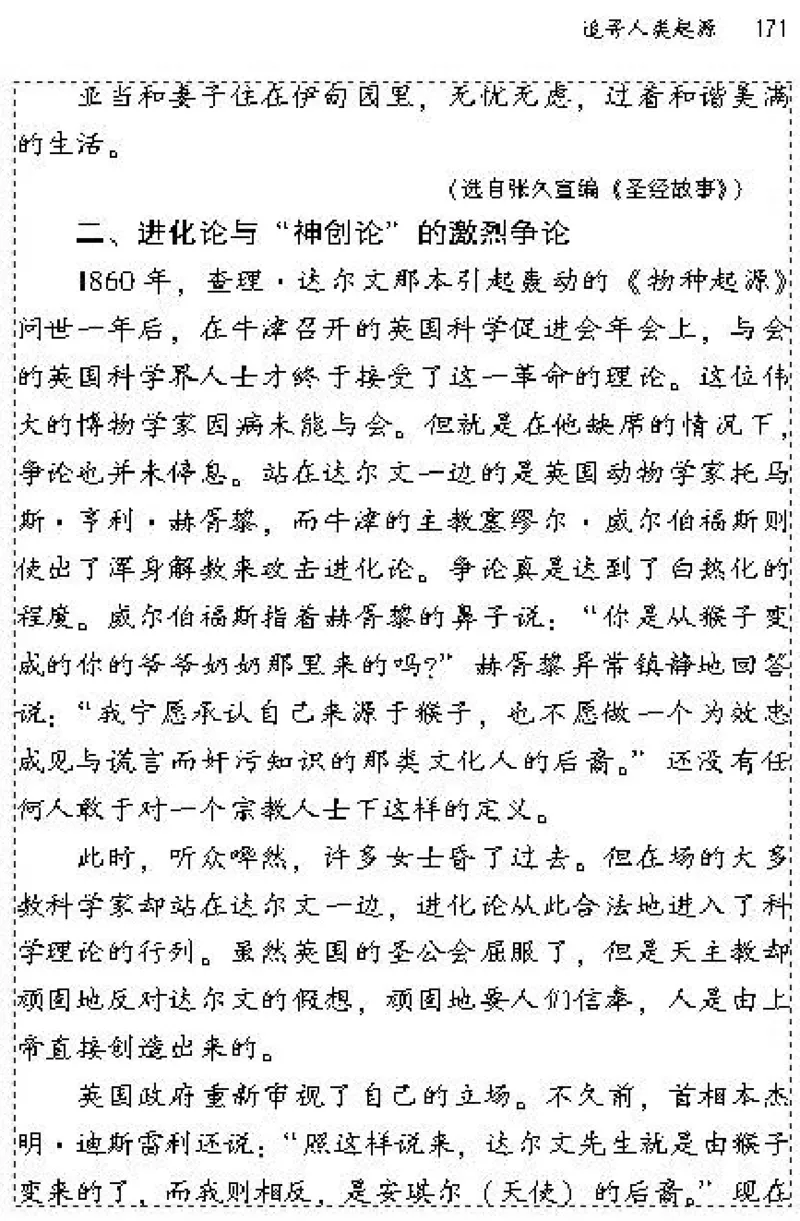 追寻人类起源 171
亚当和妻子住在伊甸园里，无忧无虑，过着和谐美满
的生活。
（选自张久宣编《圣经故事》）
二、进化论与“神创论”的激烈争论
1860 年，查理·达尔文那本引起轰动的《物种起源》
问世一年后，在牛津召开的英国科学促进会年会上，与会
的英国科学界人士才终于接受了这一革命的理论。这位伟
大的博物学家因病未能与会。但就是在他缺席的情况下，
争论也并未停息。站在达尔文一边的是英国动物学家托马
斯·亨利·赫胥黎，而牛津的主教塞缪尔·威尔伯福斯则
使出了浑身解数来攻击进化论。争论真是达到了白热化的
程度。威尔伯福斯指着赫胥黎的鼻子说：“你是从猴子变
成的你的爷爷奶奶那里来的吗?” 赫胥黎异常镇静地回答
说：“我宁愿承认自己来源于猴子，也不愿做一个为效忠
成见与谎言而奸污知识的那类文化人的后裔。” 还没有任
何人敢于对一个宗教人士下这样的定义。
此时，听众哗然，许多女士昏了过去。但在场的大多
数科学家却站在达尔文一边，进化论从此合法地进入了科
学理论的行列。虽然英国的圣公会屈服了，但是天主教却
顽固地反对达尔文的假想，顽固地要人们信奉，人是由上
帝直接创造出来的。
英国政府重新审视了自己的立场。不久前，首相本杰
明·迪斯雷利还说：“照这样说来，达尔文先生就是由猴子
变来的了，而我则相反，是安琪尔（天使）的后裔。” 现在